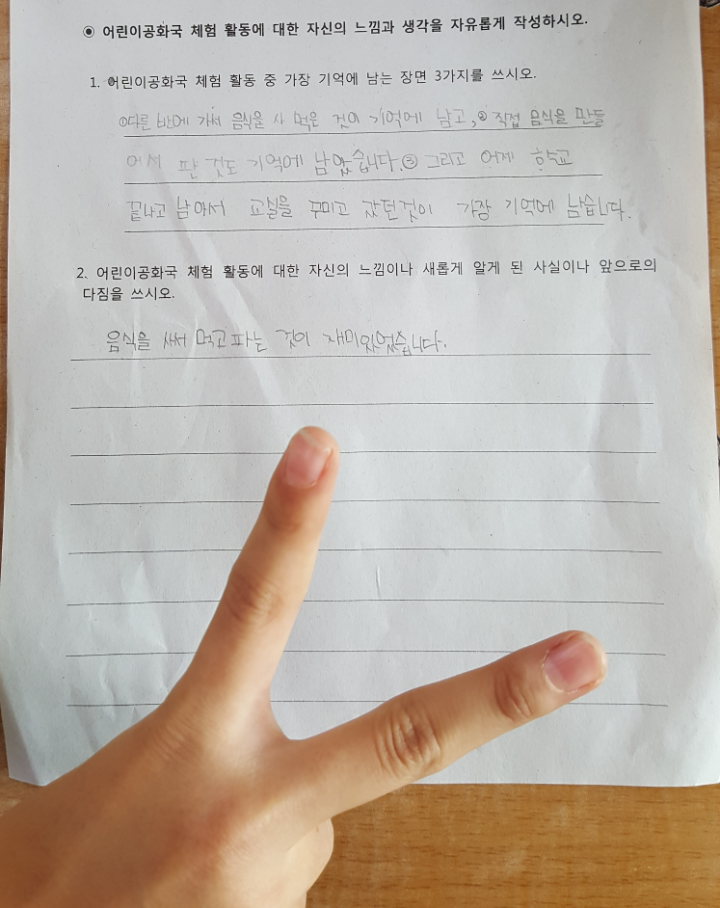 ◉ 어린이공화국 체험 활동에 대한 자신의 느낌과 생각을 자유롭게 작성하시오.
1. 어린이공화국 체험 활동 중 가장 기억에 남는 장면 3가지를 쓰시오.
①다른 반에 가서 음식을 사 먹은 것이 기억에 남고, ② 직접 음식을 만들
어서 판 것도 기억에 남았습니다. ③ 그리고 어제 학교
끝나고 남아서 교실을 꾸미고 갔던 것이 가장 기억에 남습니다.
2. 어린이공화국 체험 활동에 대한 자신의 느낌이나 새롭게 알게 된 사실이나 앞으로의
다짐을 쓰시오.
음식을 먹고 파는 것이 재미있었습니다.